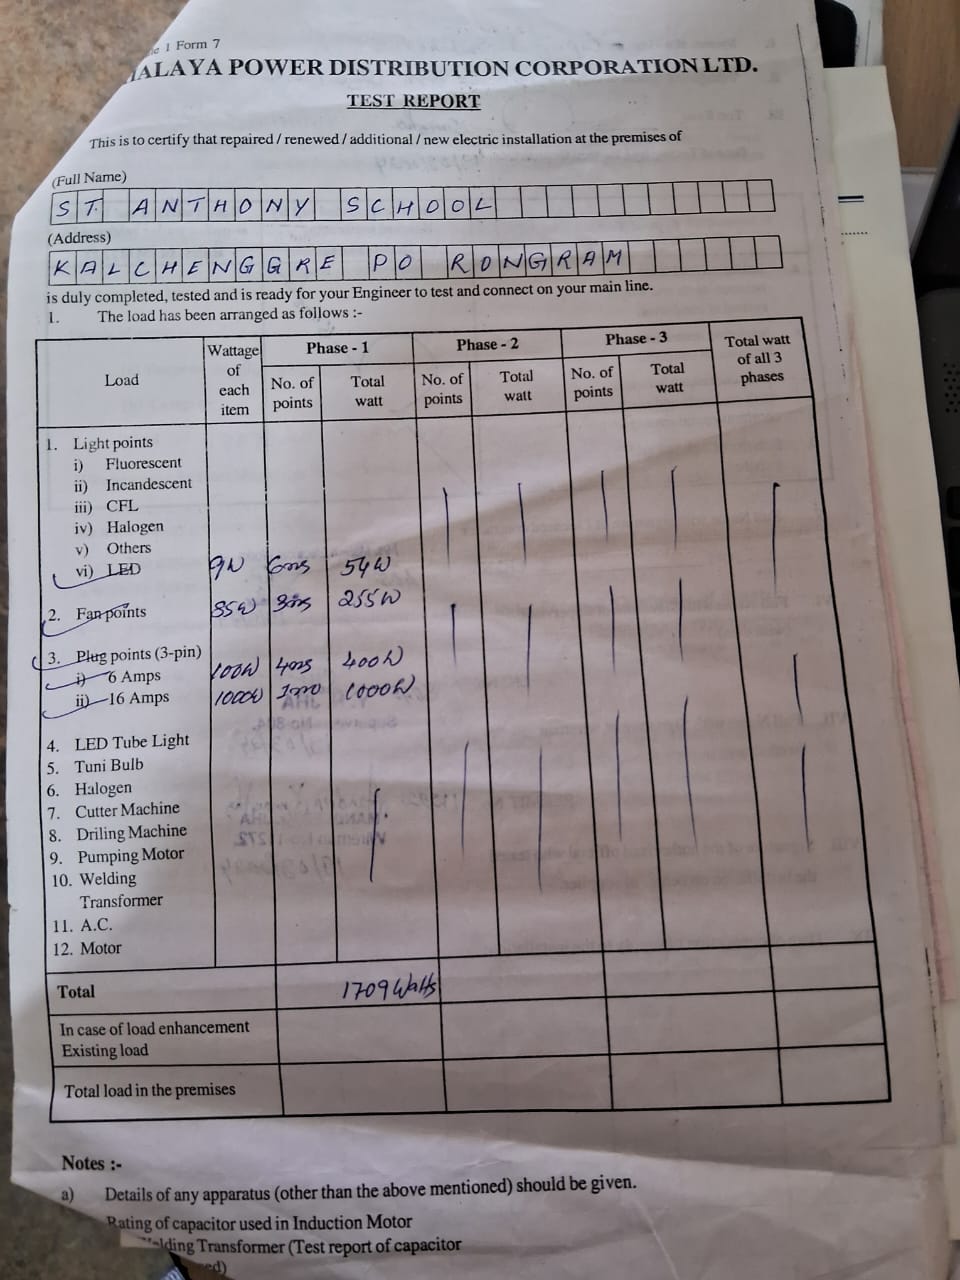 1 Form 7
ALAYA POWER DISTRIBUTION CORPORATION LTD.
TEST REPORT
This is to certify that repaired / renewed / additional / new electric installation at the premises of
(Full Name)
ST. ANTHONY SCHOOL
(Address)
KALCHENGGRE PO RONGRAM
is duly completed, tested and is ready for your Engineer to test and connect on your main line.
1. The load has been arranged as follows :-
Load Wattage of each item Phase - 1 Phase - 2 Phase - 3 Total watt of all 3 phases
No. of points Total watt No. of points Total watt No. of points Total watt
1. Light points
i) Fluorescent
ii) Incandescent
iii) CFL
iv) Halogen
v) Others
vi) LED 9W 6nos 54W
2. Fan points 85W 3nos 255W
3. Plug points (3-pin)
i) 6 Amps 100W 4nos 400W
ii) 16 Amps 1000W 1no 1000W
4. LED Tube Light
5. Tuni Bulb
6. Halogen
7. Cutter Machine
8. Driling Machine
9. Pumping Motor
10. Welding
Transformer
11. A.C.
12. Motor
Total 1709 Watts
In case of load enhancement
Existing load
Total load in the premises
Notes :-
a) Details of any apparatus (other than the above mentioned) should be given.
Rating of capacitor used in Induction Motor
lding Transformer (Test report of capacitor
ed)